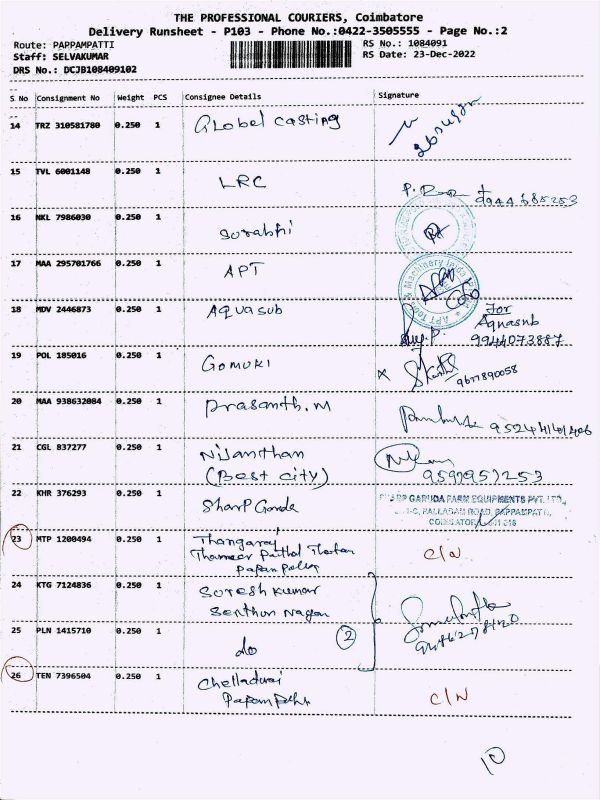 THE PROFESSIONAL COURIERS, Coimbatore
Delivery Runsheet - P103 - Phone No.:0422-3505555 - Page No.:2
Route: PAPPAMPATTI
RS No.: 1084091
Staff: SELVAKUMAR
RS Date: 23-Dec-2022
DRS No.: DCJB108409102
S No Consignment No Weight PCS Consignee Details Signature
14 TRZ 310581780 0.250 1 Global casting
15 TVL 6001148 0.250 1 LRC
9944685253
16 NKL 7986030 0.250 1 Surabhi
17 MAA 295701766 0.250 1 APT
18 MDV 2446873 0.250 1 Aquasub
For
Aquasub
9944073887
19 POL 185016 0.250 1 Gomuki
x 9677890058
20 MAA 938632084 0.250 1 Prasanth.M
21 CGL 837277 0.250 1 Nijanthan
(Best city)
22 KHR 376293 0.250 1 Sharp Garuda
SHARP GARUDA FARM EQUIPMENTS PVT. LTD.,
PALLADAM ROAD, PAPPAMPATTI,
COIMBATORE
23 MTP 1200494 0.250 1 Thangaraj
C/N
24 KTG 7124836 0.250 1 Suresh kumar
Senthur Nagar
25 PLN 1415710 0.250 1 do 2
26 TEN 7396504 0.250 1 Chelladurai
C/N
10